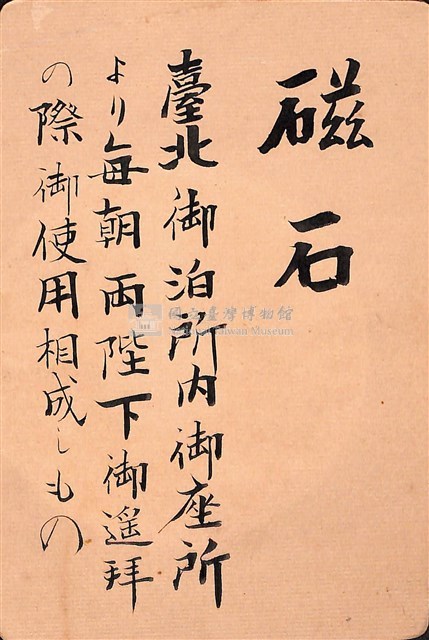 磁石
臺北御泊所内御座所
より毎朝両陛下御遥拜
の際御使用相成しもの
國立臺灣博物館
National Taiwan Museum